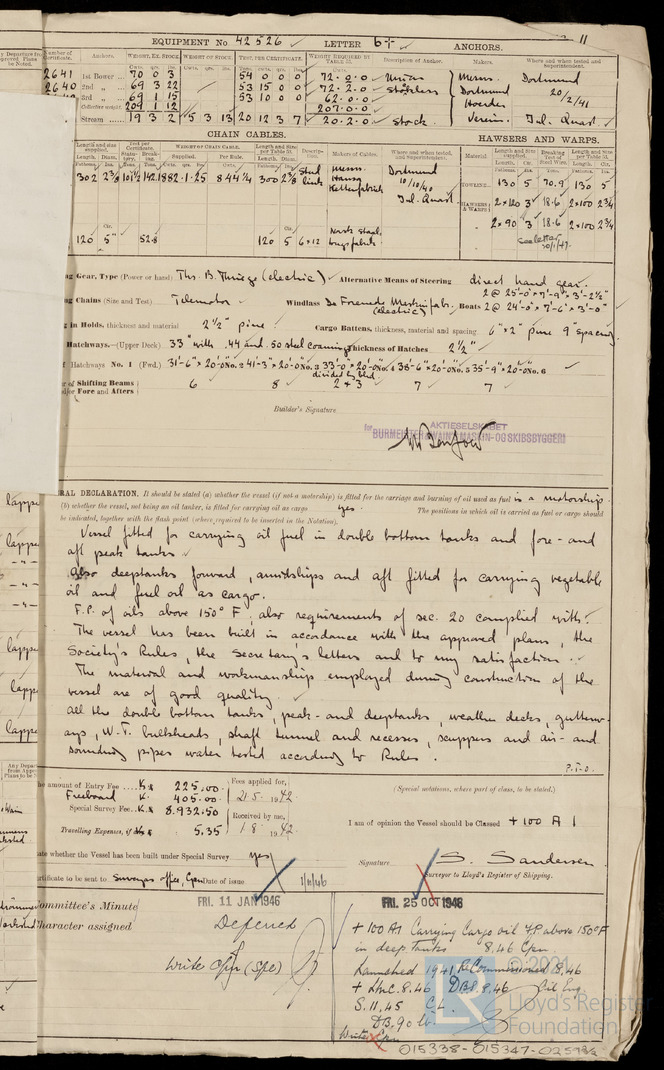 11
EQUIPMENT No. 42526 LETTER b† ANCHORS.
Number of Certificate. Anchors. WEIGHT, EX. STOCK WEIGHT OF STOCK. TEST, PER CERTIFICATE. WEIGHT REQUIRED BY TABLE 31. Description of Anchor. Makers. Where and when tested and Superintendent.
2641 1st Bower 70 0 3 54 0 0 0 72.0.0 Union Messrs. Dortmund
2640 2nd „ 69 3 22 53 15 0 0 72.2.0 Stockless Dortmund 20/2/41
3rd „ 69 1 15 53 10 0 0 62.0.0 Hoerder
Collective weight. 209 1 12 207.0.0
Stream 19 3 2 5 3 13 20 12 3 7 20.2.0 Stock. Verein. Jul. Quast.
CHAIN CABLES. HAWSERS AND WARPS.
302 2⅜ 882.1.25 844¼ 300 2⅜ Stud link Messrs. Hansa Kettenfabrik Dortmund 10/10/40 Jul. Quast
130 5 70.9 130 5
2x120 3 18.6 2x100 2¾
2x90 3 18.6 2x100 2¾
120 5" 52.8 120 5 6x12
see letter 30/1/47.
ng Gear, Type (Power or hand) Ths. B. Thrige (electric) Alternative Means of Steering direct hand gear.
2 @ 25'-0" x 7'-9" x 3'-2½"
ng Chains (Size and Test) Telemotor Windlass De Forenede Maskinfabr. (electric) Boats 2 @ 24'-0" x 7'-6" x 3'-0"
g in Holds, thickness and material 2½" pine Cargo Battens, thickness, material and spacing 6" x 2" pine 9" spacing
Hatchways.—(Upper Deck) 33" with .44 and .50 steel coaming Thickness of Hatches 2½"
f Hatchways No. 1 (Fwd.) 31'-6" x 20'-0" No. 2 41'-3" x 20'-0" No. 3 33'-0" x 20'-0" No. 4 38'-6" x 20'-0" No. 5 35'-9" x 20'-0" No. 6
divided by bhd.
r of Shifting Beams 6 8 2 + 3 7 7
d/or Fore and Afters
Builder's Signature
for AKTIESELSKABET
BURMEISTER & WAIN'S MASKIN- OG SKIBSBYGGERI
RAL DECLARATION. It should be stated (a) whether the vessel (if not a motorship) is fitted for the carriage and burning of oil used as fuel is a motorship.
(b) whether the vessel, not being an oil tanker, is fitted for carrying oil as cargo yes The positions in which oil is carried as fuel or cargo should
be indicated, together with the flash point (where required to be inserted in the Notation).
Vessel fitted for carrying oil fuel in double bottom tanks and fore- and
aft peak tanks
Also deeptanks forward, amidships and aft fitted for carrying vegetable
oil and fuel oil as cargo.
F.P. of oils above 150° F, also requirements of sec. 20 complied with.
The vessel has been built in accordance with the approved plans, the
Society's Rules, the Secretary's letters and to my satisfaction.
The material and workmanship employed during construction of the
vessel are of good quality.
All the double bottom tanks, peak- and deeptanks, weather decks, gutterw-
ays, W.T. bulkheads, shaft tunnel and recesses, scuppers and air- and
sounding pipes water tested according to Rules.
P.T.O.
he amount of Entry Fee Kr. 225.00 Fees applied for,
Freeboard K. 405.00 21.5 1942
Special Survey Fee Kr. 8.932.50 Received by me,
Travelling Expenses, if any Kr. 5.35 1.8 1942
(Special notations, where part of class, to be stated.)
I am of opinion the Vessel should be Classed + 100 A 1
ate whether the Vessel has been built under Special Survey yes
Signature S. Sandersen
Surveyor to Lloyd's Register of Shipping.
rtificate to be sent to Surveyors office, Cpn Date of issue 1/11/46
Committee's Minute FRI. 11 JAN 1946
Character assigned Deferred
Write Cpn (Spe)
FRI. 25 OCT 1946
+ 100 A1 Carrying Cargo oil F.P above 150°F
in deep tanks 8.46 Cpn.
Launched 1941 ReCommissioned 8.46
+ LMC 8.46 DBS 8.46 Oil Eng.
S. 11.45 C.L.
DB 90 lb.
Write Cpn
© 2021
LR
Lloyd's Register
Foundation
015338-015347-0259